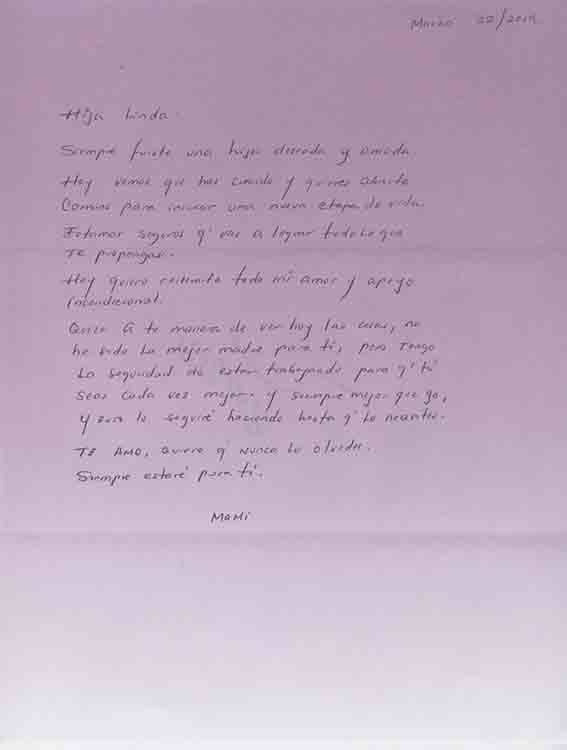 Marzo 22/2019
Hija Linda.
Siempre fuiste una hija deseada y amada.
Hoy vemos que has crecido y quieres abrirte
Camino para iniciar una nueva etapa de vida.
Estamos seguros q' vas a lograr todo lo que
TE propongas.
Hoy quiero reiterarte todo mi amor y apoyo
Incondicional.
Quizá a tu manera de ver hoy las cosas, no
he sido la mejor madre para tí, pero Tengo
La seguridad de estar trabajando para q' tú
seas cada vez mejor y siempre mejor que yo,
y eso lo seguiré haciendo hasta q' lo necesites.
TE AMO, quiero q' nunca lo olvides.
Siempre estaré para tí.
MAMI